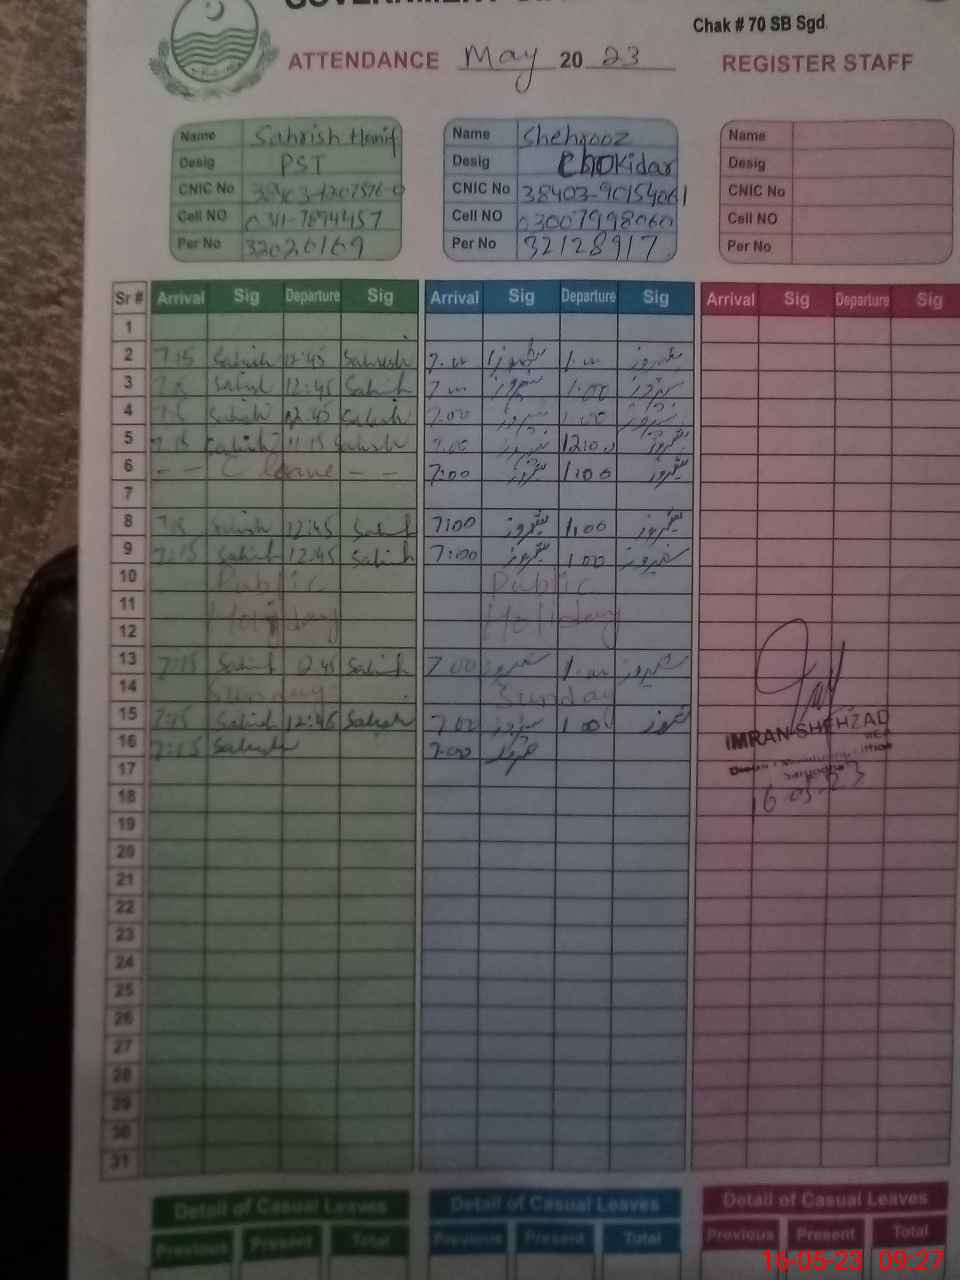 Chak # 70 SB Sgd.
ATTENDANCE May 20 23 REGISTER STAFF
Name Sahrish Hanif Name Shehrooz Name
Desig PST Desig Chokidar Desig
CNIC No CNIC No 38403-90154061 CNIC No
Cell NO Cell NO 03007998060 Cell NO
Per No 32026169 Per No 32128917 Per No
Sr # Arrival Sig Departure Sig Arrival Sig Departure Sig Arrival Sig Departure Sig
1
2 7:15 Sahrish 12:45 Sahrish 7.00 شہروز 1.00 شہروز
3 Sahrish 12:45 Sahrish 7.00 شہروز 1.00 شہروز
4 Sahrish 12:45 Sahrish 7.00 شہروز 1.00 شہروز
5 7:15 Sahrish 11:15 Sahrish 7.00 شہروز 12:00 شہروز
6 - - C leave - - 7:00 شہروز 1:00 شہروز
7
8 Sahrish 12:45 Sahrish 7:00 شہروز 1:00 شہروز
9 7:15 Sahrish 12:45 Sahrish 7:00 شہروز 1 00 شہروز
10 Public Public
11 Holiday Holiday
12
13 7:15 Sahrish 12:45 Sahrish 7 00 شہروز 1.00 شہروز
14 Sunday Sunday
15 7:15 Sahrish 12:45 Sahrish 7.00 شہروز 1 00 شہروز
16 7:15 Sahrish 7:00 شہروز
IMRAN SHEHZAD
16-05-23
17
18
19
20
21
22
23
24
25
26
27
28
29
30
31
Detail of Casual Leaves Detail of Casual Leaves Detail of Casual Leaves
Previous Present Total Previous Present Total Previous Present Total
16-05-23 09:27